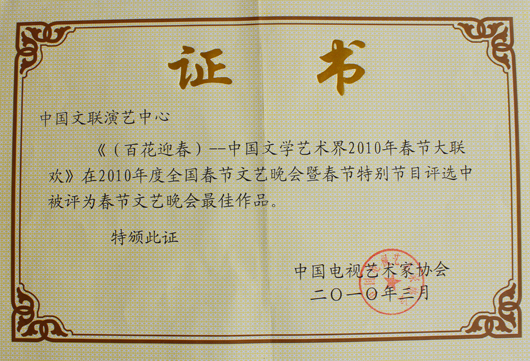 证书
中国文联演艺中心
《（百花迎春）--中国文学艺术界2010年春节大联
欢》在2010年度全国春节文艺晚会暨春节特别节目评选中
被评为春节文艺晚会最佳作品。
特颁此证
中国电视艺术家协会
二〇一〇年三月